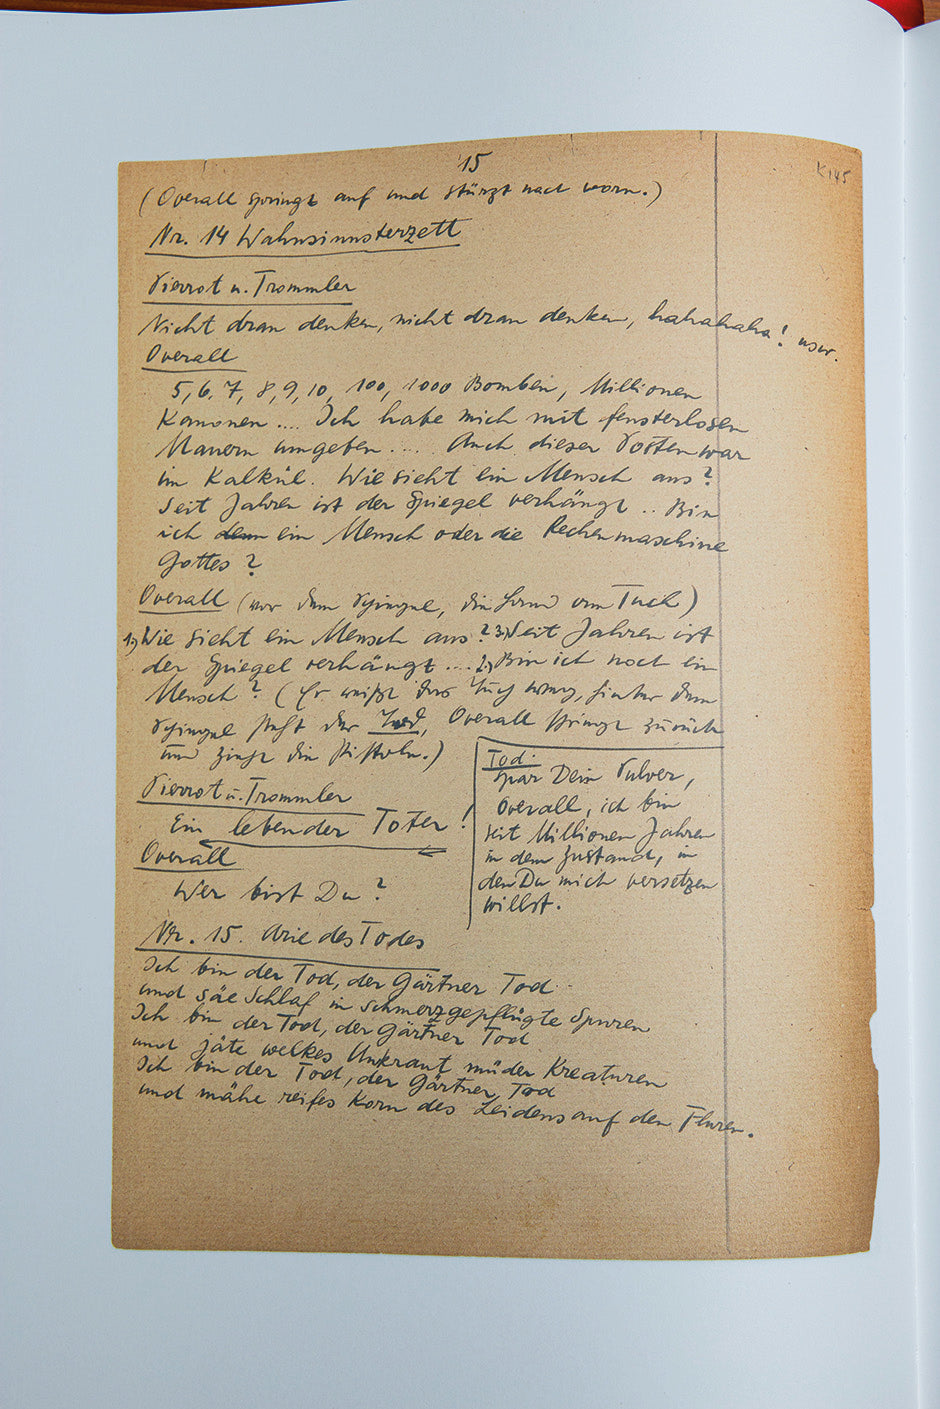 15
K 145
(Overall springt auf und stürzt nach vorn.)
Nr. 14 Wahnsinnsterzett
Pierrot u. Trommler
Nicht dran denken, nicht dran denken, hahahaha! usw.
Overall
5, 6, 7, 8, 9, 10, 100, 1000 Bomben, Millionen
Kanonen .... Ich habe mich mit fensterlosen
Mauern umgeben .... Auch dieser Posten war
im Kalkül. Wie sieht ein Mensch aus?
Seit Jahren ist der Spiegel verhängt .. Bin
ich denn ein Mensch oder die Rechenmaschine
Gottes?
Overall (vor dem Spiegel, die Hand am Tuch)
1.) Wie sieht ein Mensch aus? 3.) Seit Jahren ist
der Spiegel verhängt .... 2.) Bin ich noch ein
Mensch? (Er reißt das Tuch weg, hinter dem
Spiegel steht der Tod, Overall springt zurück
und zieht die Pistole.)
Pierrot u. Trommler
Ein lebender Toter!
Overall
Wer bist Du?
Tod
Spar Dein Pulver,
Overall, ich bin
seit Millionen Jahren
in dem Zustand, in
den Du mich versetzen
willst.
Nr. 15. Arie des Todes
Ich bin der Tod, der Gärtner Tod
und säe Schlaf in schmerzgepflügte Spuren
Ich bin der Tod, der Gärtner Tod
und jäte welkes Unkraut müder Kreaturen
Ich bin der Tod, der Gärtner Tod
und mähe reifes Korn des Leidens auf den Fluren.